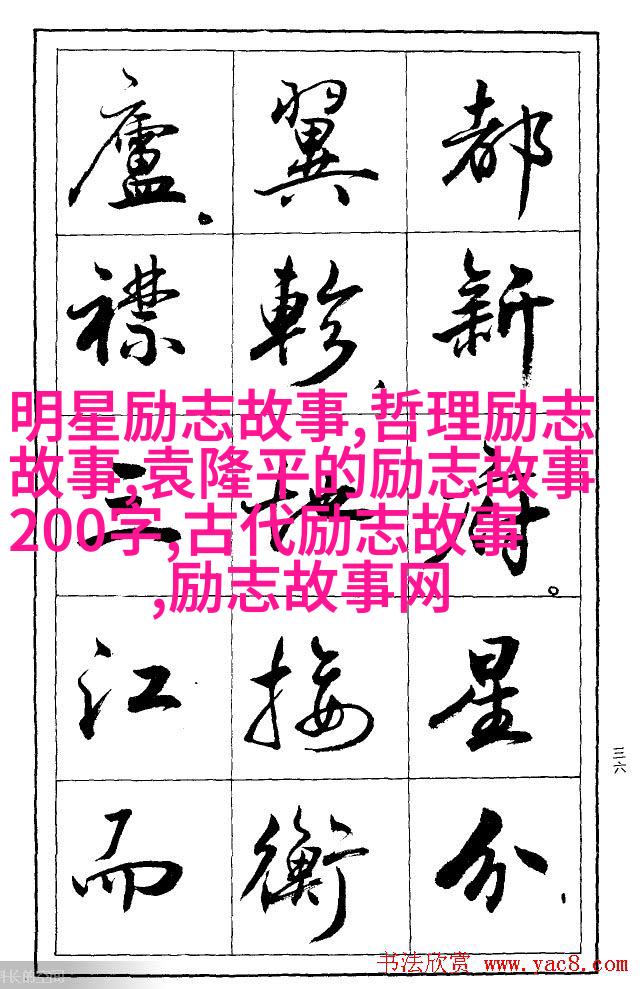 都新府。星分、
翼軫、地接衡
廬。襟三江而
明星励志故事,哲理励志
故事,袁隆平的励志故事
200字,古代励志故事
,励志故事网
三六
书法欣赏 www.yac8.com
长的空间